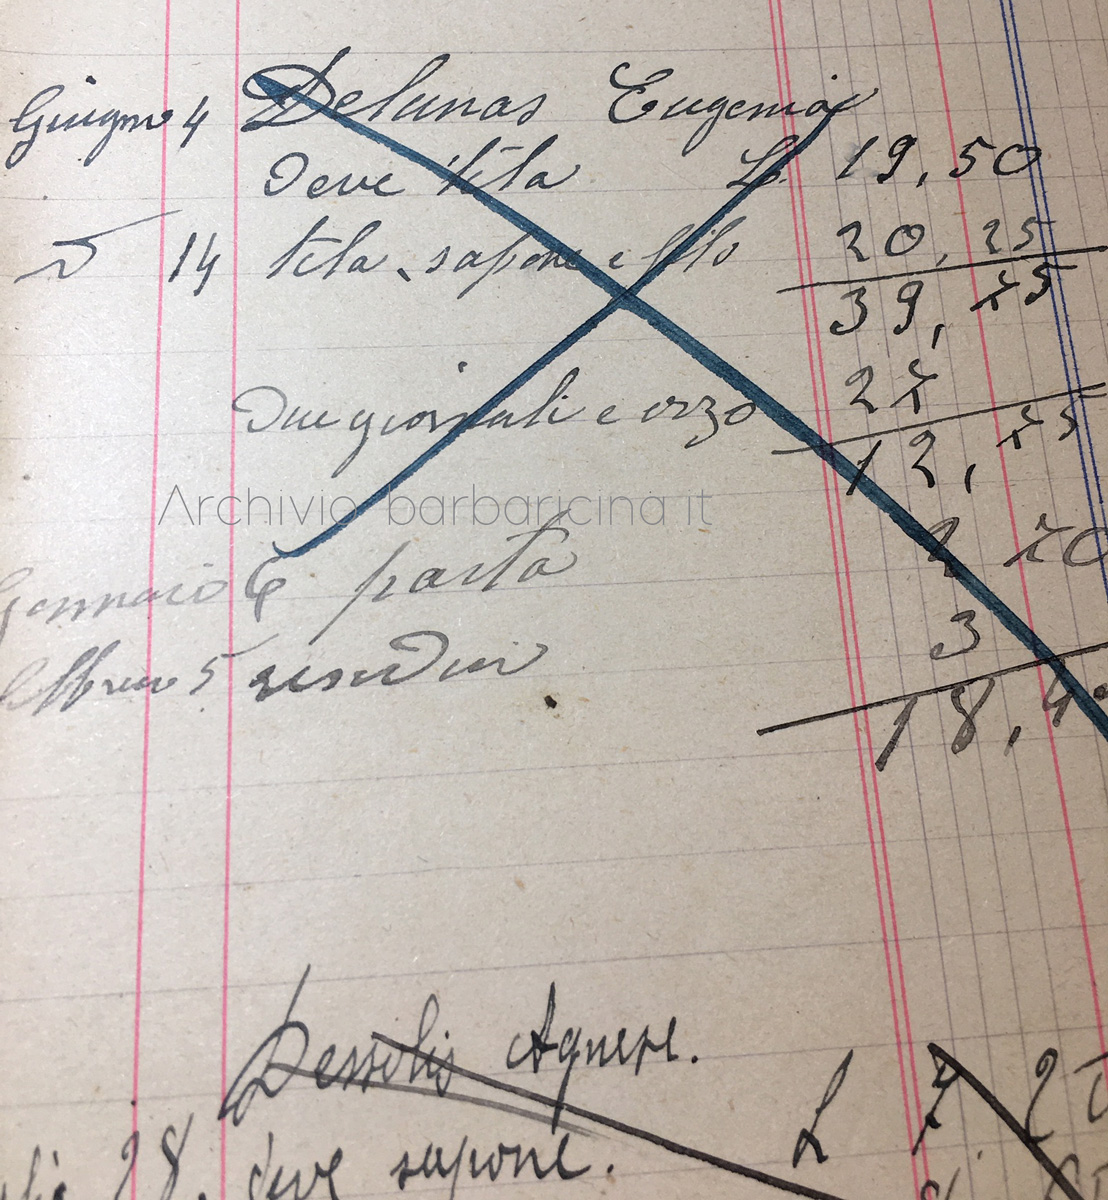 Giugno 4 Delunas Eugenia
Deve tela L. 19,50
14 tela, sapone e filo 20,25
39,75
Due giornali e orzo 27
12,75
Archivio barbaricina it
Gennaio 6 pasta 2 70
5 3
18,4
Dessolis Agnese.
L 7 2
28. deve sapone.